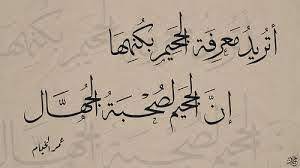 أتريدُ معرفةَ الجحيمِ بكنهِهَا
إنَّ الجحيمَ لصُحبةُ الجُهَّالِ
عمر الخيام